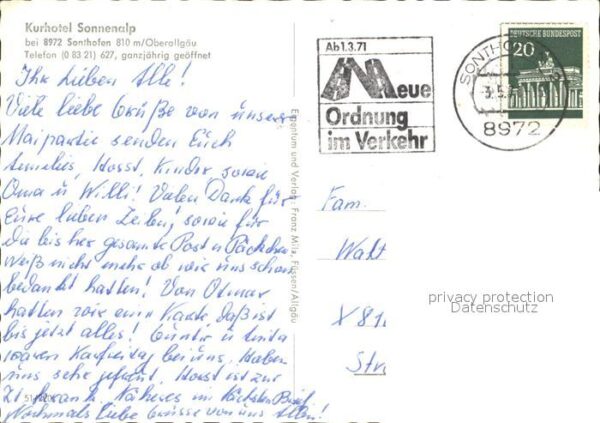 Kurhotel Sonnenalp
bei 8972 Sonthofen 810 m/Oberallgäu
Telefon (0 83 21) 627, ganzjährig geöffnet
Ihr Lieben Alle!
Viele liebe Grüße von unserer
Maipartie senden Euch
Annelies, Horst, Kinder, sowie
Oma u. Willi! Vielen Dank für
Eure lieben Zeilen, sowie für
die bisher gesamte Post u. Päckchen
Weiß nicht mehr ob wir uns schon
bedankt hatten! Von Otmar
hatten wir eine Karte daß ist
bis jetzt alles! Günter u. Anita
waren Karfreitag bei uns. Haben
uns sehr gefreut. Horst ist zur
Zt. krank. Näheres im nächsten Brief
Nochmals liebe Grüsse von uns Allen!
Eigentum und Verlag: Franz Milz, Füssen/Allgäu
Ab 1.3.71
Neue
Ordnung
im Verkehr
SONTHO
3.5.
8972
DEUTSCHE BUNDESPOST
20
Fam.
Walt
X 81
Str
privacy protection
Datenschutz